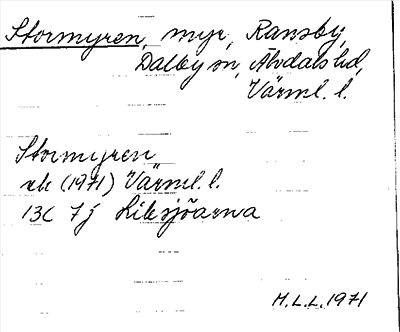 Stormyren, myr, Ransby,
Dalby sn, Älvdals hd,
Värml. l.
Stormyren
ek (1971) Värml. l.
13C 7j Liksjöarna
H.L.L. 1971